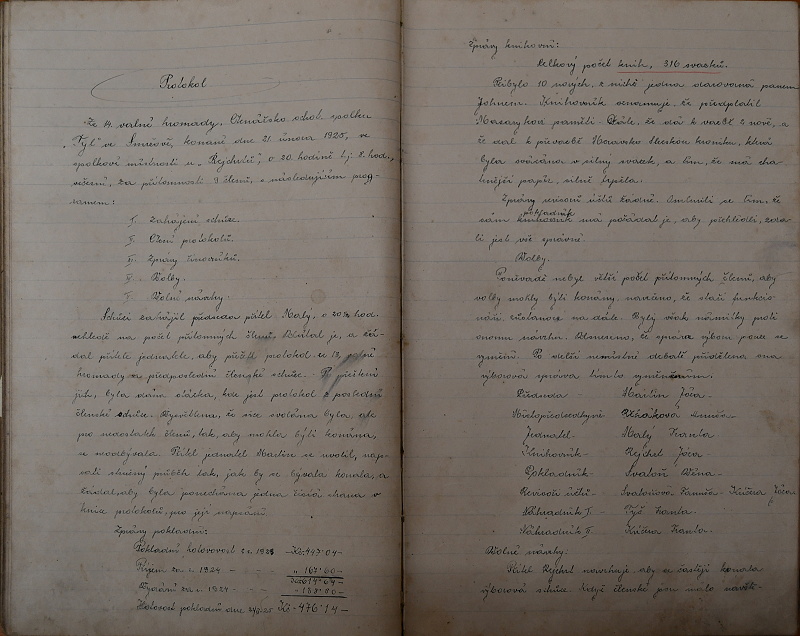 Protokol
Ze 14. valné hromady, Čtenářsko ochot. spolku
„Tyl" ve Smrčově, konané dne 21. února 1925, ve
spolkové místnosti u „Rejchrtů", o 20. hodině t.j. 8. hod.,
večerní, za přítomnosti 9 členů, s následujícím prog-
ramem:
I. Zahájení schůze.
II. Čtení protokolů.
III. Zprávy činovníků.
IV. Volby.
V. Volné návrhy.
Schůzi zahájil předseda přítel Malý, o 20¾ hod.
nehledě na počet přítomných členů. Uvítal je, a žá-
dal přítele jednatele, aby přečtl protokol z 13. valné
hromady a předposlední členské schůze. Po přečtení
jich, byla dána otázka, kde jest protokol z poslední
členské schůze. Vysvětleno, že sice svolána byla, ale
pro nedostatek členů, tak, aby mohla býti konána,
se neodbývala. Přítel jednatel Martin se uvolil, nap-
sati stručný průběh tak, jak by se bývala konala, a
žádal, aby byla ponechána jedna čistá strana v
knize protokolů, pro její napsání.
Zprávy pokladní:
Pokladní hotovost z r. 1923 - Kč 447·04-
Příjem za r. 1924 - - - „ 167·60-
Kč 614·64-
Vydání za r. 1924 - - - - 138·50-
Hotovost pokladní dne 21/2 25 Kč - 476·14-
Zprávy knihovní:
Celkový počet knih, 316 svazků.
Přibylo 10 nových, z nichž jedna darovaná panem
Johnem. Knihovník oznamuje, že předplatil
Masarykovy paměti. Dále, že dá k vazbě 2 nové, a
že dal k převazbě Husovsko kroniku, která
byla svázána v silný svazek, a tím, že má cha-
trnější papír, silně trpěla.
Zprávy revisorů účtů žádné. Omluvili se tím, že
sám pokladník má požádat je, aby přehlédli, zda-
li jest vše správné.
Volby.
Poněvadž nebyl větší počet přítomných členů, aby
volby mohly býti konány, navrženo, že staří funkcio-
náři zůstanou na dále. Byly však námitky proti
onomu návrhu. Usneseno, že správa výboru pouze se
vymění. Po delší debatě přidělena ona
výborová správa tímto výměnám.
Předseda - Martin Józa
Místopředsedkyně Anuše
Jednatel - Malý Franta.
Knihovník - Rejchrt Józa.
Pokladník - Svatoň Véna -
Revisoři účtů - Svatoňová Fanuše - Kučera Józa
Náhradník I - Tyč Fanta.
Náhradník II. Kučera Franta.
Volné návrhy:
Přítel Rejchrt navrhuje, aby se častěji konala
výborová schůze. Když členské jsou málo navští-